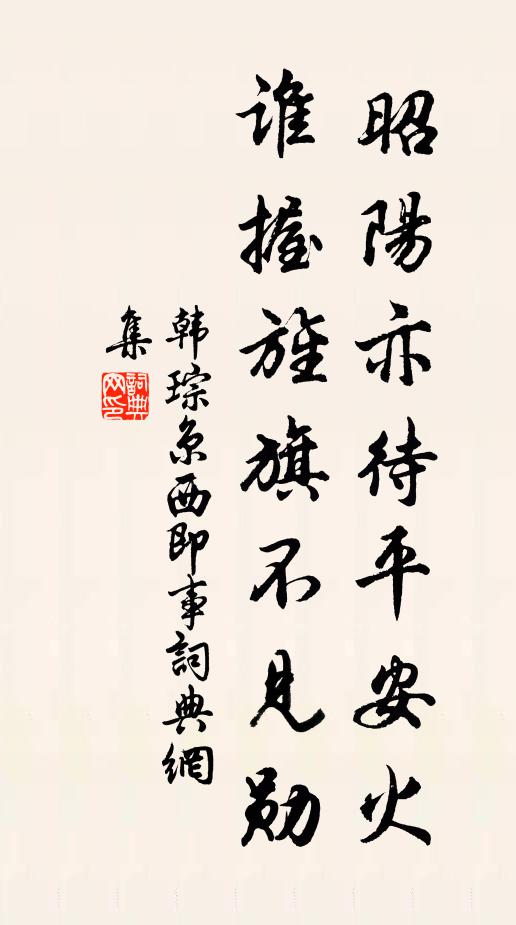 昭陽亦待平安火
誰握旌旗不見勛
韩琮京西即事詞典網
集
詞典
网印